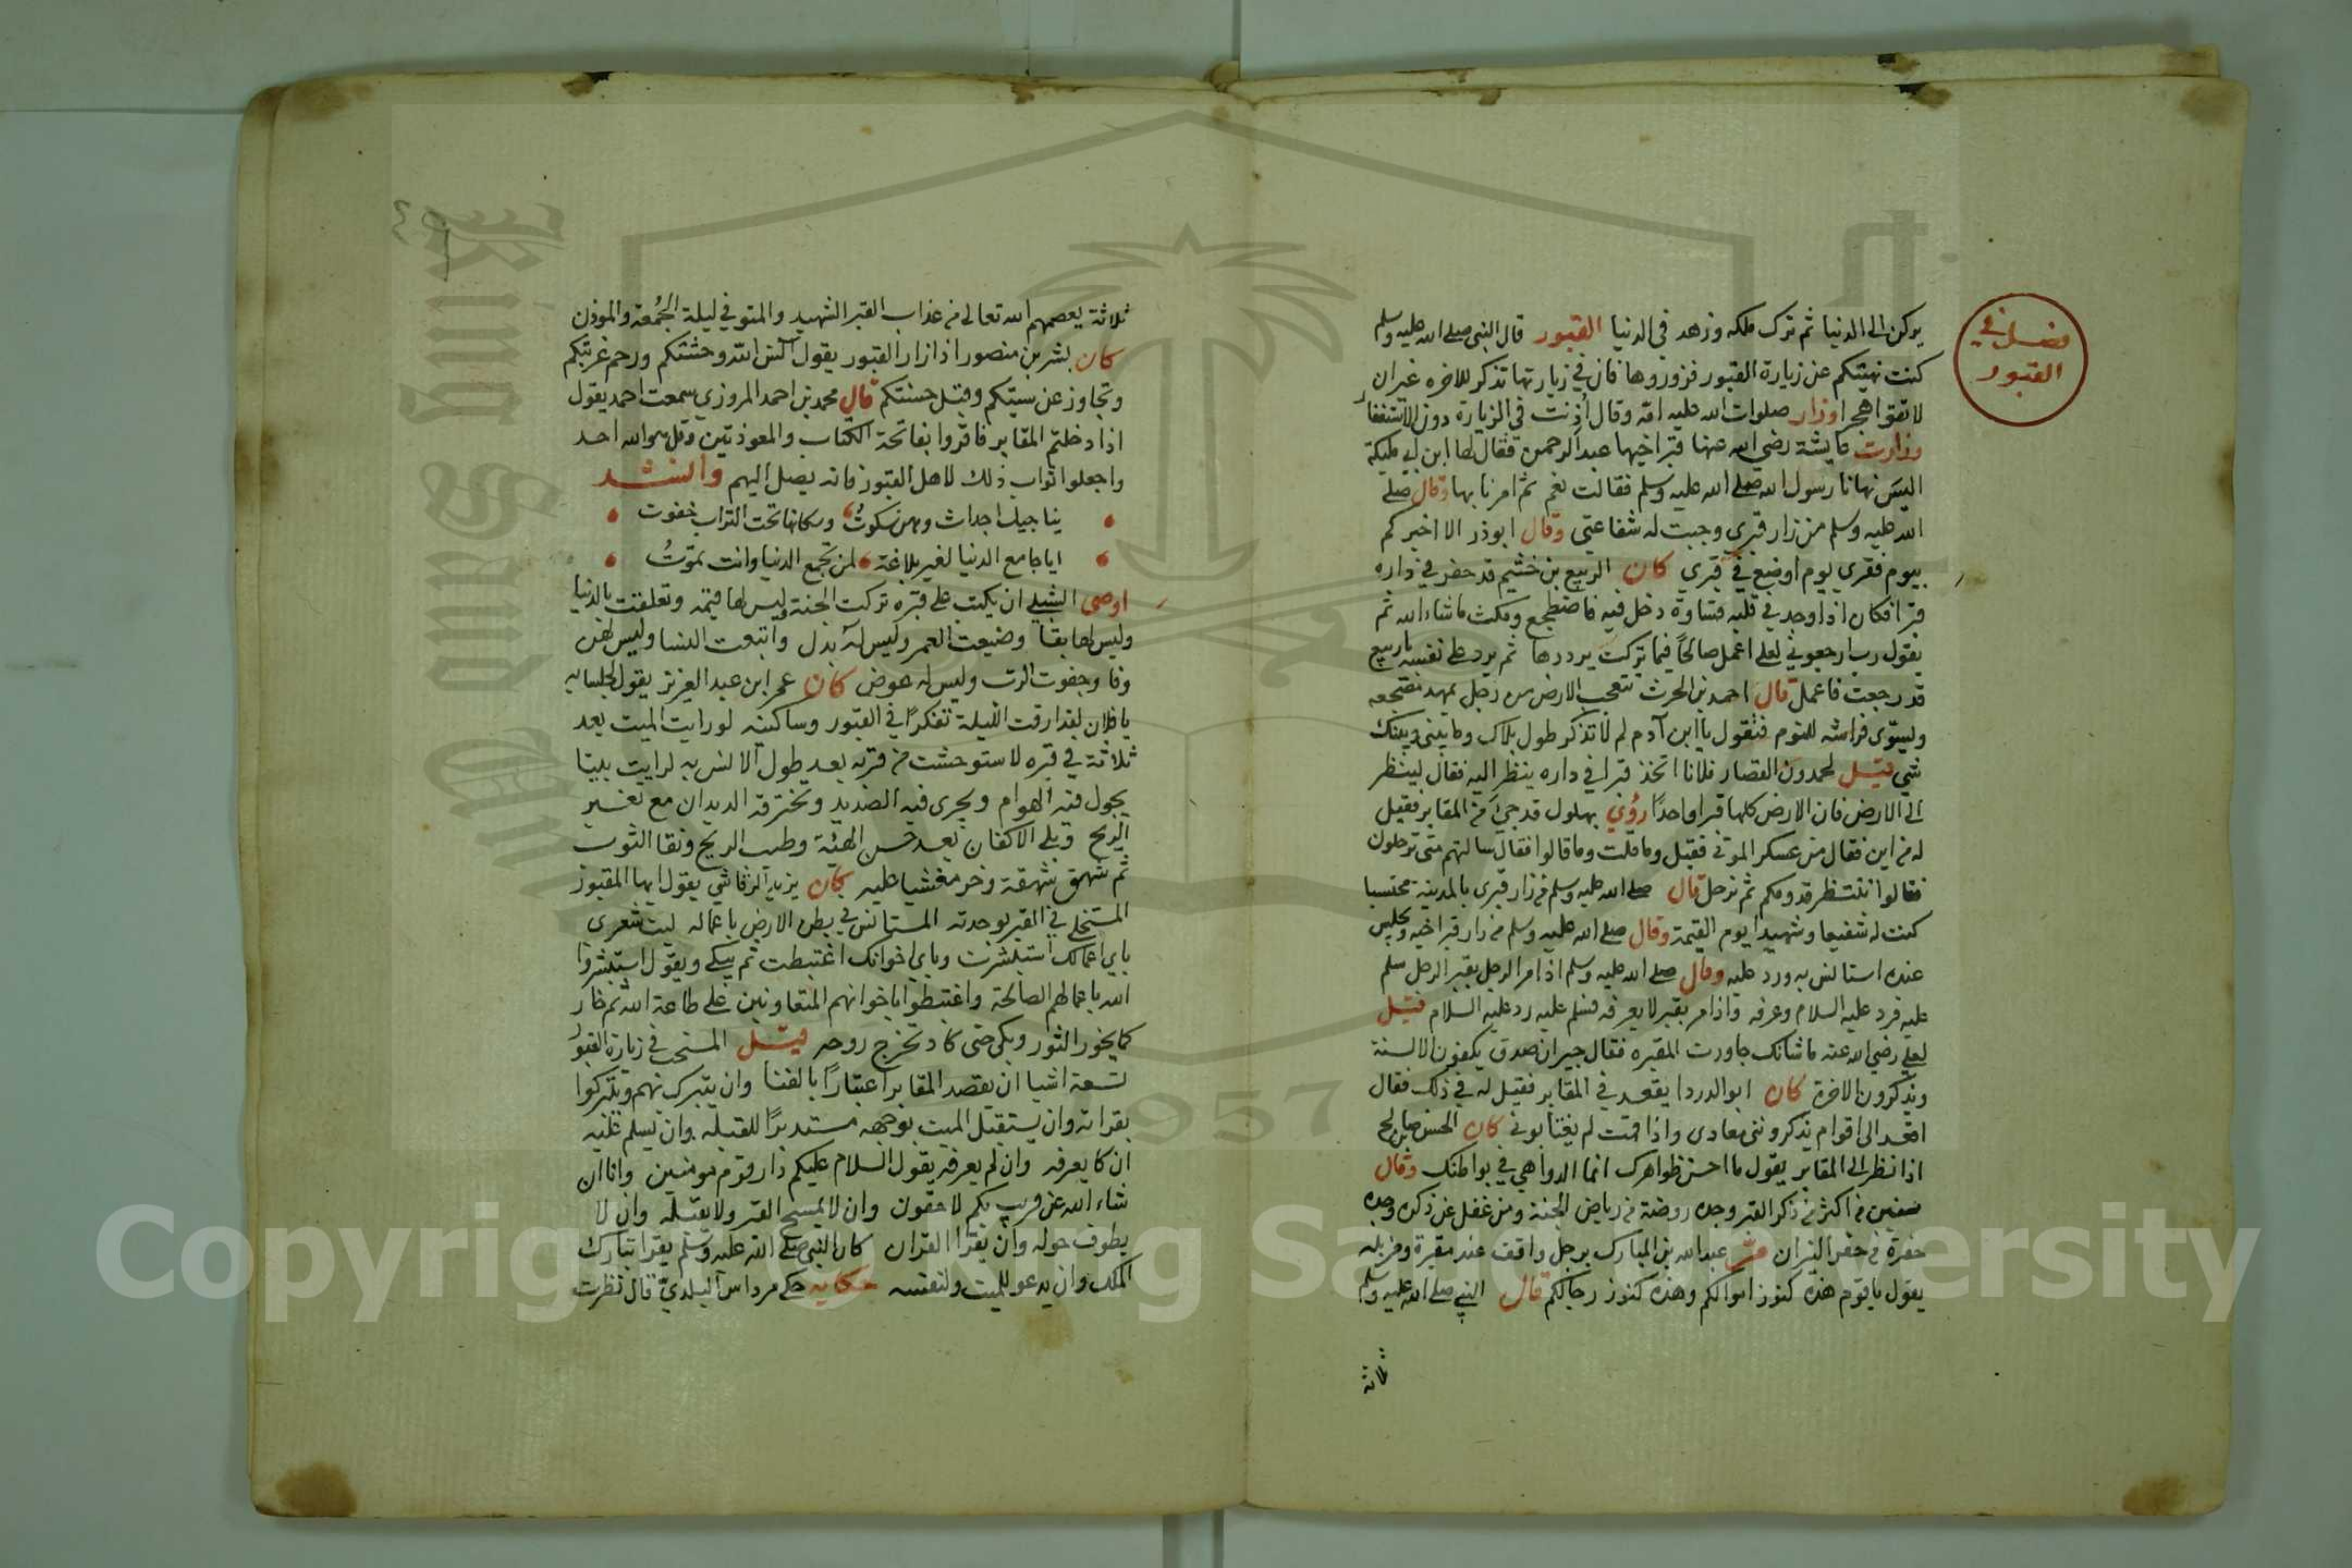 فصل في
القبور
يركن الى الدنيا ثم ترك ملكه وزهد في الدنيا القبور قال النبي صلى الله عليه وسلم
كنت نهيتكم عن زيارة القبور فزوروها فان في زيارتها تذكر للاخره غير ان
لا تقولوا هجرا وزار صلوات الله عليه امّه وقال أذنت في الزيارة دون الاستغفار
وزارت عايشة رضي الله عنها قبر اخيها عبد الرحمن فقال لها ابن ابي مليكة
اليس نهانا رسول الله صلى الله عليه وسلم فقالت نعم ثم امرنا بها وقال صلى
الله عليه وسلم من زار قبري وجبت له شفاعتي وقال ابوذر الا اخبركم
بيوم فقري يوم اوضع في قبري كان الربيع بن خثيم قد حفر في داره
قبرا فكان اذا وجد في قلبه قساوة دخل فيه فاضطجع ومكث ماشاء الله ثم
يقول رب ارجعوني لعلي اعمل صالحًا فيما تركت يرددها ثم يرد على نفسه ياربيع
قد رجعت فاعمل قال احمد بن الحرث تتعجب الارض من رجل يمهد مضجعه
ويسوّى فراشه للنوم فتقول يا ابن آدم لم لا تذكر طول بلاك وما بيني وبينك
شي قيل لحمدون القصار فلانا اتخذ قبرا في داره ينظر اليه فقال لينظر
الى الارض فان الارض كلها قبرا واحدًا رؤي بهلول قد جيء من المقابر فقيل
له من اين فقال من عسكر الموتى فقيل وما قلت وما قالوا فقال سالتهم متى ترحلون
فقالوا ننتظر قدومكم ثم نرحل قال صلى الله عليه وسلم من زار قبري بالمدينة محتسبا
كنت له شفيعا وشهيدا يوم القيمة وقال صلى الله عليه وسلم من زار قبر اخيه وجلس
عنده استانس به ورد عليه وقال صلى الله عليه وسلم اذا مر الرجل بقبر الرجل سلم
عليه فرد عليه السلام وعرفه واذا مر بقبر لا يعرفه فسلم عليه رد عليه السلام قيل
لعلي رضي الله عنه ما شانك جاورت المقبره فقال جيران صدق يكفون الالسنة
ويذكرون الاخرة كان ابو الدردا يقعد في المقابر فقيل له في ذلك فقال
اقعد الى اقوام يذكرونني معادي واذا قمت لم يغتابوني كان الحسن بن صالح
اذا نظر الى المقابر يقول ما احسن ظواهرك انما الدواهي في بواطنك وقال
سفين من اكثر من ذكر القبر وجده روضة من رياض الجنة ومن غفل عن ذكره وجده
حفرة من حفر النيران مر عبد الله بن المبارك برجل واقف عند مقبرة ومزبله
يقول يا قوم هذه كنوز اموالكم وهذه كنوز رجالكم قال النبي صلى الله عليه وسلم
ثلاثة
ثلاثة يعصمهم الله تعالى من عذاب القبر الشهيد والمتوفي ليلة الجمُعة والموذن
كان بشر بن منصور اذا زار القبور يقول آنس الله وحشتكم ورحم غربتكم
وتجاوز عن سيئكم وقبل حسنتكم قال محمد بن احمد المروزي سمعت احمد يقول
اذا دخلتم المقابر فاقروا بفاتحة الكتاب والمعوذتين وقل هو الله احد
واجعلوا ثواب ذلك لاهل القبور فانه يصل اليهم وانشد
يناجيك اجداث وهن سكوتُ وسكانها تحت التراب خفوت
ايا جامع الدنيا لغير بلاغة لمن تجمع الدنيا وانت تموتُ
اوصى الشبلي ان يكتب على قبره تركت الجنة وليس لها قيمه وتعلقت بالدنيا
وليس لها بقا وضيعت العمر وليس له بدل واتبعت النسا وليس لهن
وفا وجفوت الرب وليس له عوض كان عمر ابن عبد العزيز يقول لجلسايه
يا فلان لقد ارقت الليلة تفكرًا في القبور وساكنيه لو رايت الميت بعد
ثلاثة في قبره لاستوحشت من قربه بعد طول الانس به لرايت بيتا
يجول فيه الهوام ويجري فيه الصديد وتخترقه الديدان مع تغير
الريح وبلى الاكفان بعد حسن الهيئة وطيب الريح ونقا الثوب
ثم شهق شهقة وخر مغشيا عليه كان يزيد الرقاشي يقول ايها المقبور
المتخلي في القبر بوحدته المستانس في بطن الارض باعماله ليت شعري
باي اعمالك استبشرت وباي اخوانك اغتبطت ثم يبكي ويقول استبشروا
الله باعمالهم الصالحة واغتبطوا باخوانهم المتعاونين على طاعة الله ثم خار
كما يخور الثور وبكى حتى كاد تخرج روحه قيل المستحب في زيارة القبور
تسعة اشيا ان يقصد المقابر اعتبارًا بالفنا وان يتبرك بهم ويتبركوا
بقراته وان يستقبل الميت بوجهه مستدبرًا للقبله وان يسلم عليه
ان كا يعرفه وان لم يعرفه يقول السلام عليكم دار قوم مومنين وانا ان
شاء الله عن قريب بكم لاحقون وان لا يمسح القبر ولا يقبله وان لا
يطوف حوله وان يقرا القران كان النبي صلى الله عليه وسلم يقرا تبارك
الملك وان يدعو للميت ولنفسه حكايه حكى مرداس البلدي قال نظرت
Copyright © King Saud University
1957